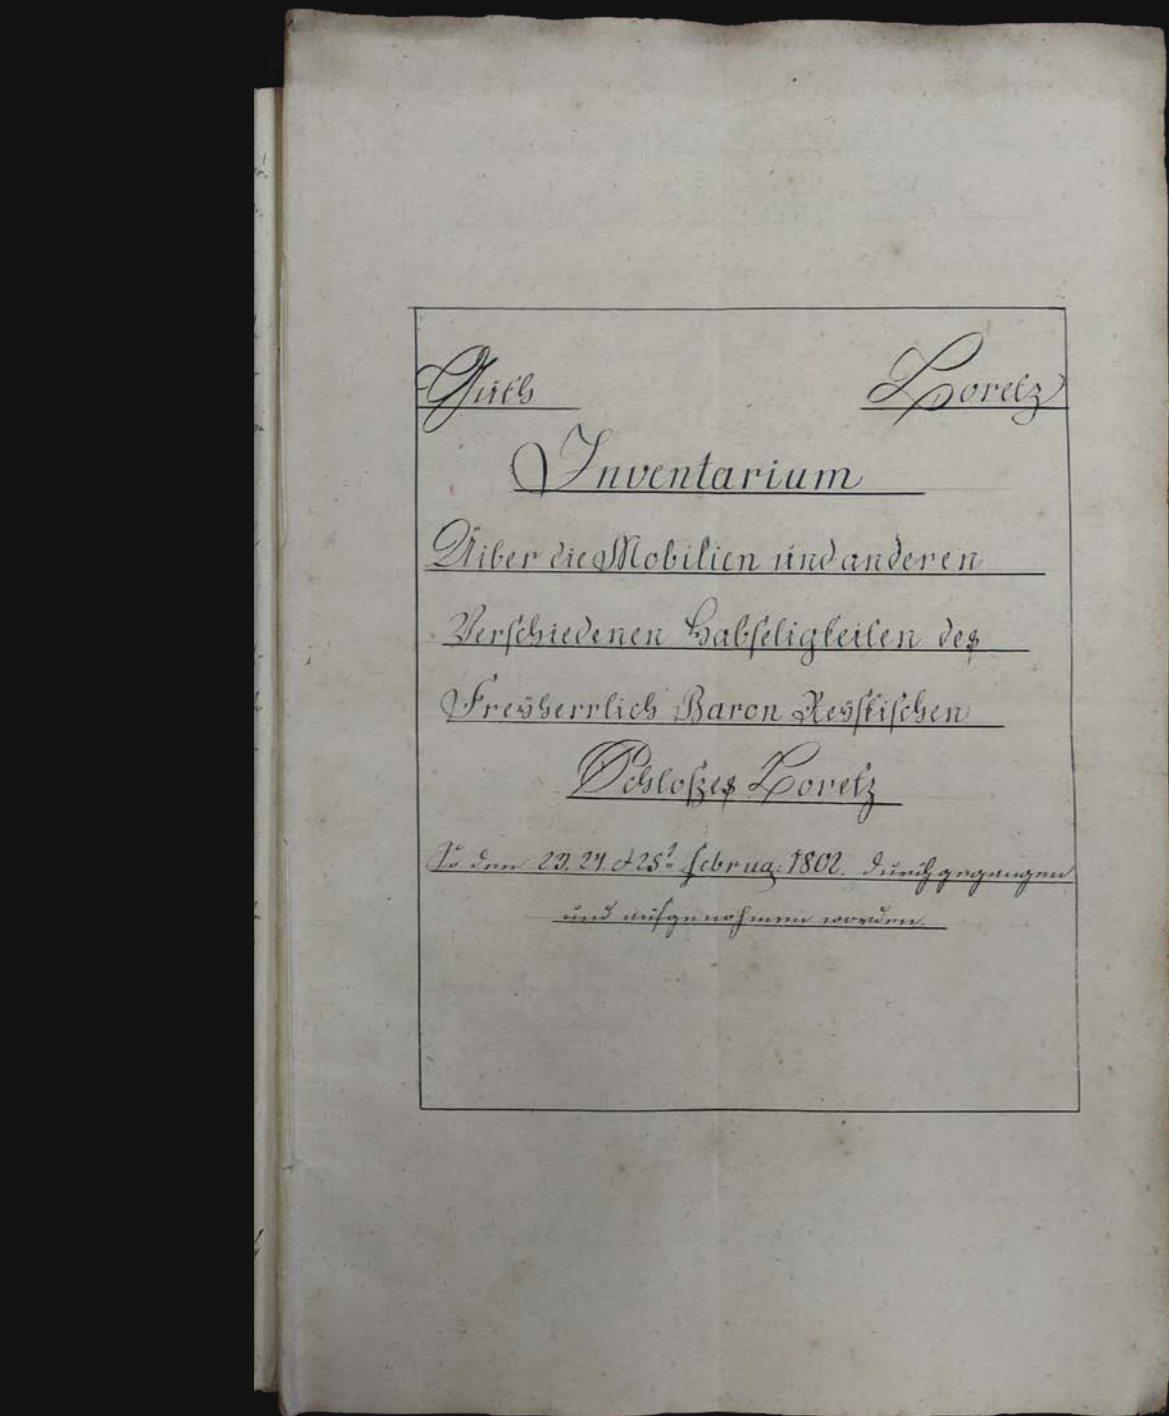 Guth Loretz
Inventarium
Uiber die Mobilien und anderen
Verschiedenen Habseligkeiten des
Freyherrlich Baron Reyskischen
Schloßes Loretz
So den 23. 24. et 25t Februa: 1802. durchgegangen
und aufgenohmen worden.